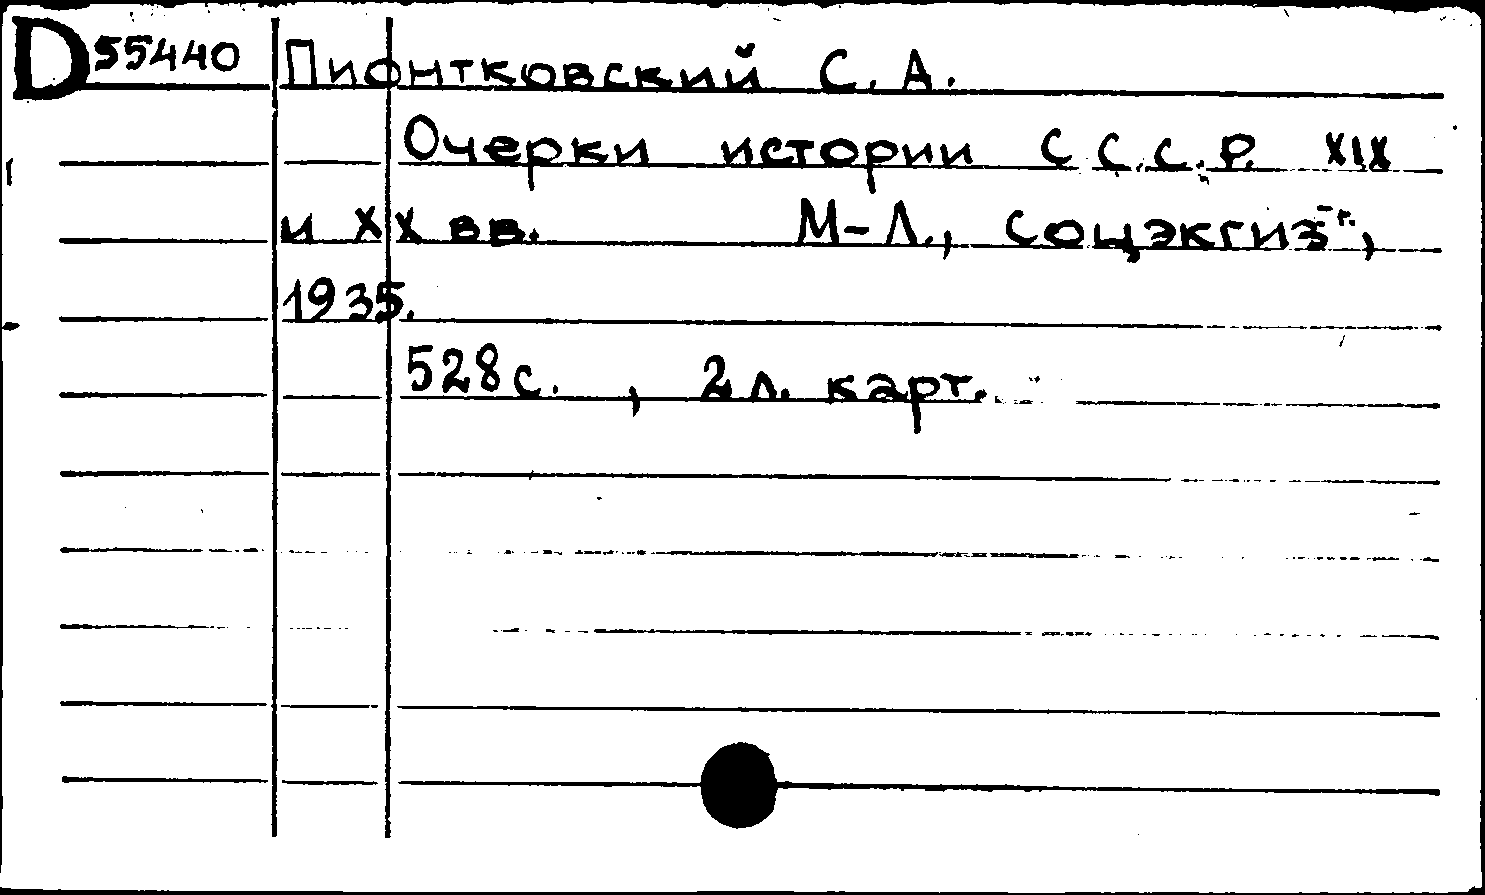 D55440 Пионтковский С. А.
Очерки истории С.С.С.Р. XIX
и XX вв. М-Л., соцэкгиз,
1935.
528с. , 2л. карт.